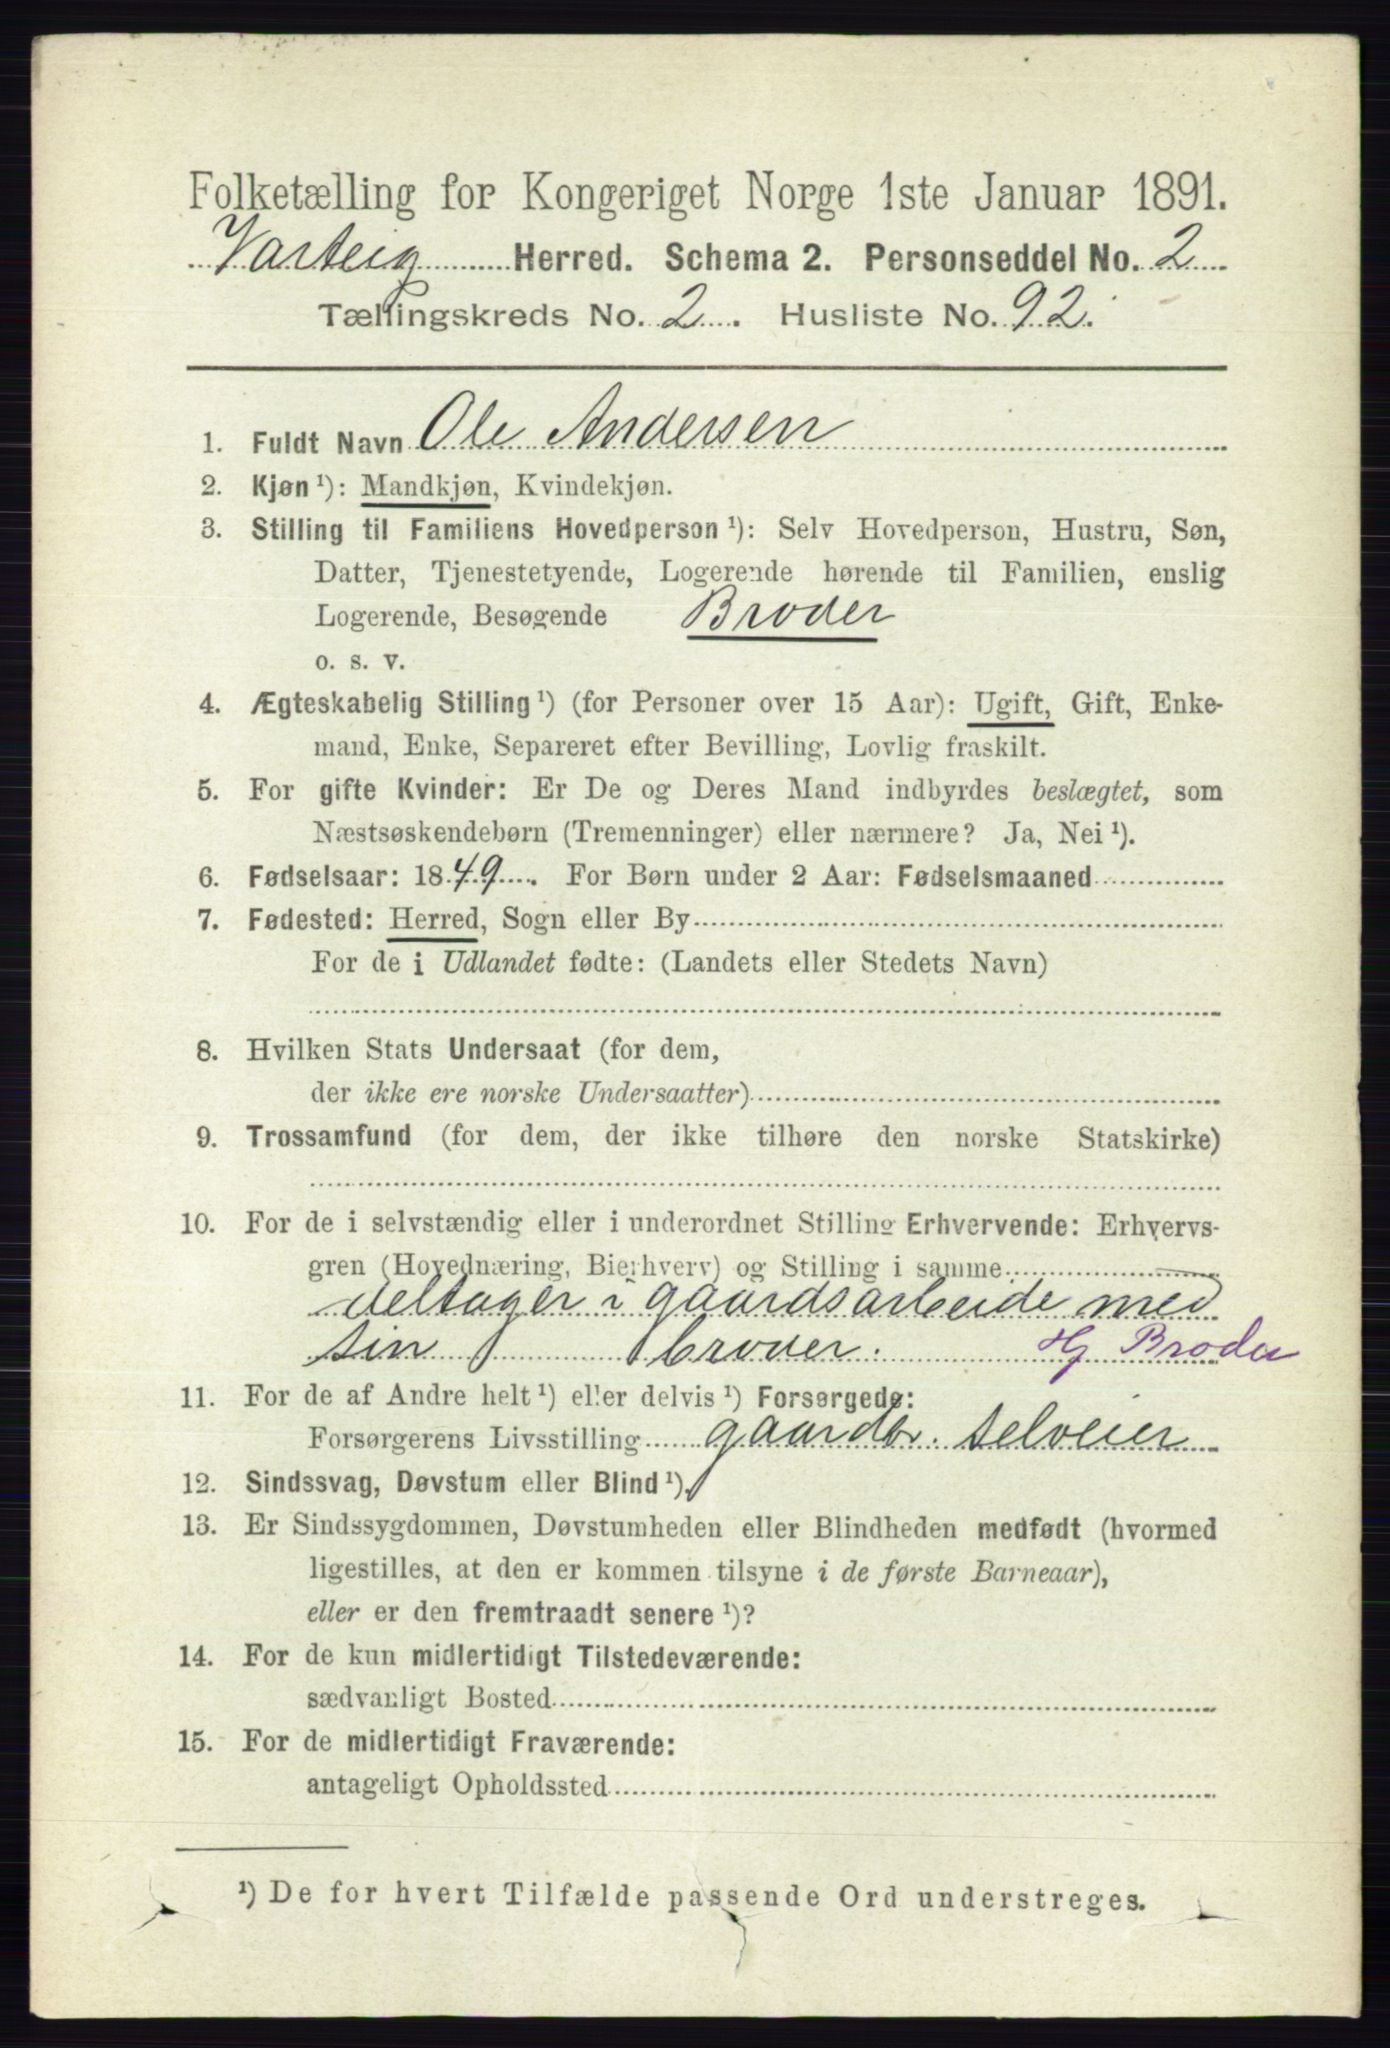 Folketælling for Kongeriget Norge 1ste Januar 1891.
Varteig Herred. Schema 2. Personseddel No. 2
Tællingskreds No. 2. Husliste No. 92.
1. Fuldt Navn Ole Andersen
2. Kjøn ¹): Mandkjøn, Kvindekjøn.
3. Stilling til Familiens Hovedperson ¹): Selv Hovedperson, Hustru, Søn,
Datter, Tjenestetyende, Logerende hørende til Familien, enslig
Logerende, Besøgende Broder
o. s. v.
4. Ægteskabelig Stilling ¹) (for Personer over 15 Aar): Ugift, Gift, Enke-
mand, Enke, Separeret efter Bevilling, Lovlig fraskilt.
5. For gifte Kvinder: Er De og Deres Mand indbyrdes beslægtet, som
Næstsøskendebørn (Tremenninger) eller nærmere? Ja, Nei ¹).
6. Fødselsaar: 1849. For Børn under 2 Aar: Fødselsmaaned
7. Fødested: Herred, Sogn eller By
For de i Udlandet fødte: (Landets eller Stedets Navn)
8. Hvilken Stats Undersaat (for dem,
der ikke ere norske Undersaatter)
9. Trossamfund (for dem, der ikke tilhøre den norske Statskirke)
10. For de i selvstændig eller i underordnet Stilling Erhvervende: Erhvervs-
gren (Hovednæring, Bierhverv) og Stilling i samme
deltager i gaardsarbeide med
sin broder. Hg Broder
11. For de af Andre helt ¹) eller delvis ¹) Forsørgede:
Forsørgerens Livsstilling gaardbr. selveier
12. Sindssvag, Døvstum eller Blind ¹).
13. Er Sindssygdommen, Døvstumheden eller Blindheden medfødt (hvormed
ligestilles, at den er kommen tilsyne i de første Barneaar),
eller er den fremtraadt senere ¹)?
14. For de kun midlertidigt Tilstedeværende:
sædvanligt Bosted
15. For de midlertidigt Fraværende:
antageligt Opholdssted
¹) De for hvert Tilfælde passende Ord understreges.